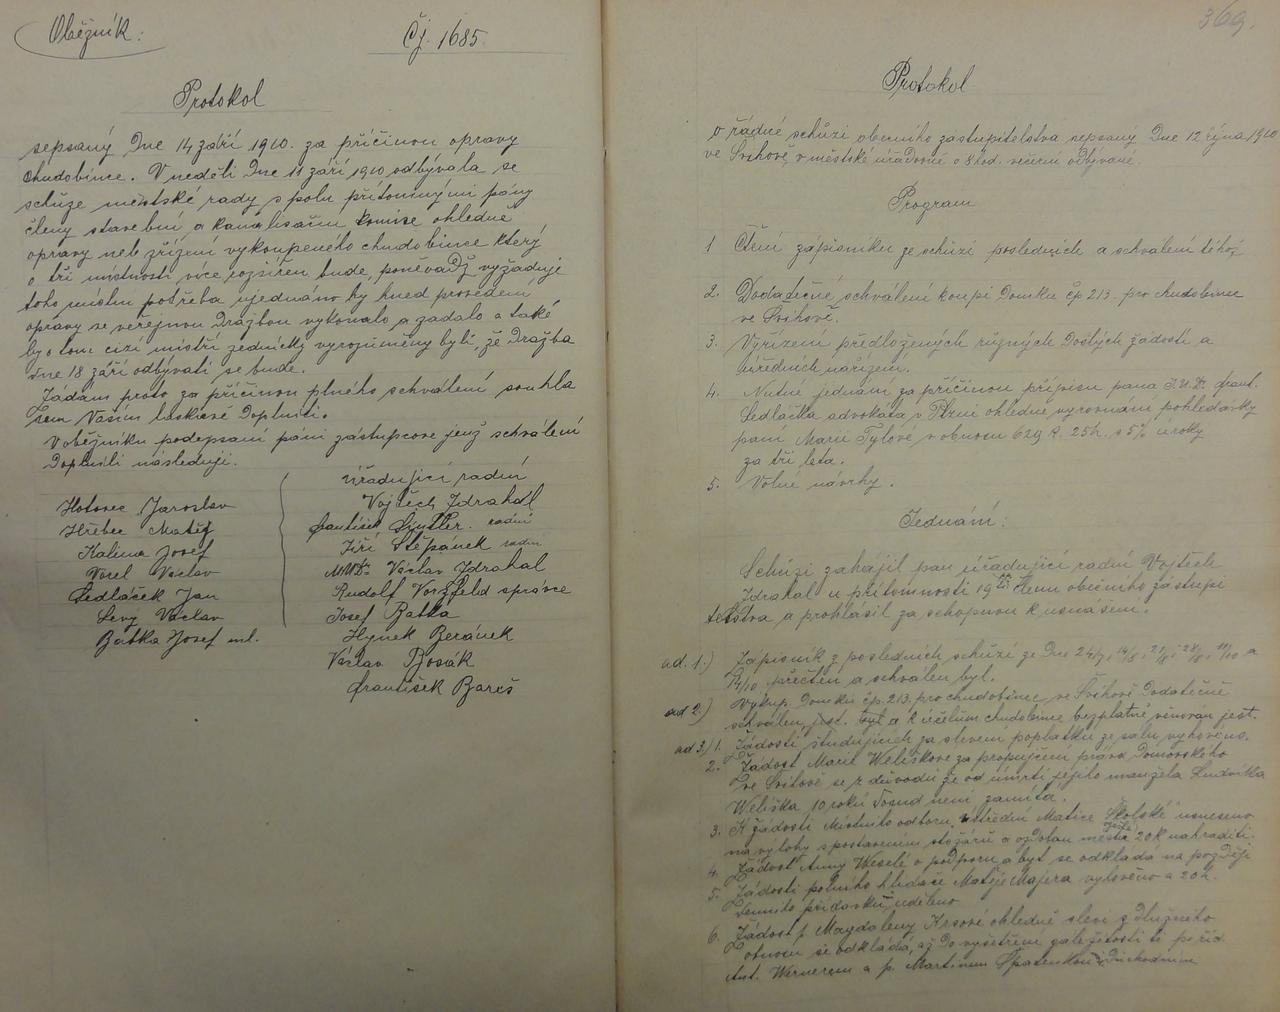 Oběžník:
Čj. 1685.
Protokol
sepsaný Dne 14 září 1910. za příčinou opravy
chudobince. V neděli Dne 11 září 1910 odbývala se
schůze městské rady s polu přítomnými pány
členy stavební a kanalisační komise ohledně
opravy neb zřízení vykoupeného chudobince který
o tři místnosti více rozšířen bude, poněvadž vyžaduje
toho místní potřeba ujednáno by hned provedení
opravy se veřejnou Dražbou vykonalo a zadalo a také
by o tom cizí mistři zedničtí vyrozuměny byli, že Dražba
Dne 18 září odbývati se bude.
Žádám proto za příčinou plného schválení souhla
sem Vaším laskavě Doplniti.
V oběžníku podepsaní páni zástupcove jenž schválení
Doplnili následují.
Hotovec Jaroslav
Hřebec Matěj
Kalina Josef
Vorel Václav
Sedláček Jan
Levý Václav
Batka Josef ml.
úřadující radní
Vojtěch Zdrahal
František radní
Jiří Štěpánek radní
MUDr Václav Zdrahal
Rudolf správce
Josef Batka
Hynek Beránek
Václav Bosák
František Bareš
369.
Protokol
o řádné schůzi obecního zastupitelstva sepsaný Dne 12 října 1910
ve Švihově v městské úřadovně o 8 hod. večerní odbývané
Program
1 Čtení zápisníku ze schůzí posledních a schválení téhož
2. Dodatečné schválení koupi Domku čp 213. pro chudobinec
ve Švihově.
3. Vyřízení předložených různých Došlých žádostí a
úředních nařízení.
4. Nutné jednání za příčinou přípisu pana J.U.Dr. Frant.
Sedláčka advokáta v Plzni ohledně vyrovnání pohledávky
paní Marii Tylové v obnosu 629 K. 25h. s 5% úroky
za tři léta.
5. Volné návrhy.
Jednání:
Schůzi zahájil pan úřadující radní Vojtěch
Zdrahal u přítomnosti 19 členu obecního zástupi
telstva a prohlásil za schopnou k usnášení.
ad. 1.) Zápisník z posledních schůzí ze Dne 24/7, 14/8, 21/8, 28/8, 11/10 a
14/10 přečten a schválen byl.
ad 2.) Výkup. Domku čp. 213. pro chudobinec ve Švihově Dodatečně
schválen, jest. byl a k účelům chudobince bezplatně věnován jest.
ad 3.) 1. Žádosti študujících za slevení poplatku ze salu vyhověno.
2. Žádost Marie Weliškove za propujčení práva Domovského
ve Švihově se z důvodu že od úmrtí jejího manžela Ludvíka
Weliška 10 roků Dosud není zamítá.
3. K žádosti Místního odboru ústřední Matice Školské usneseno
na výlohy s postavením stožárů a ozdobu města 20 K nahraditi.
4. Žádost Anny Weselé o podporu a byt se odkládá na později
5. Žádosti polního hlídače Matěje Majera vyhověno a 20 h.
Denního přídavku uděleno
6. Žádost p. Magdaleny Krsové ohledně slevi z Dlužného
obnosu se odkládá, až Do vyšetření záležitosti té po říd.
Ant. Wernerem a p. Martinem Špatenkou Důchodním